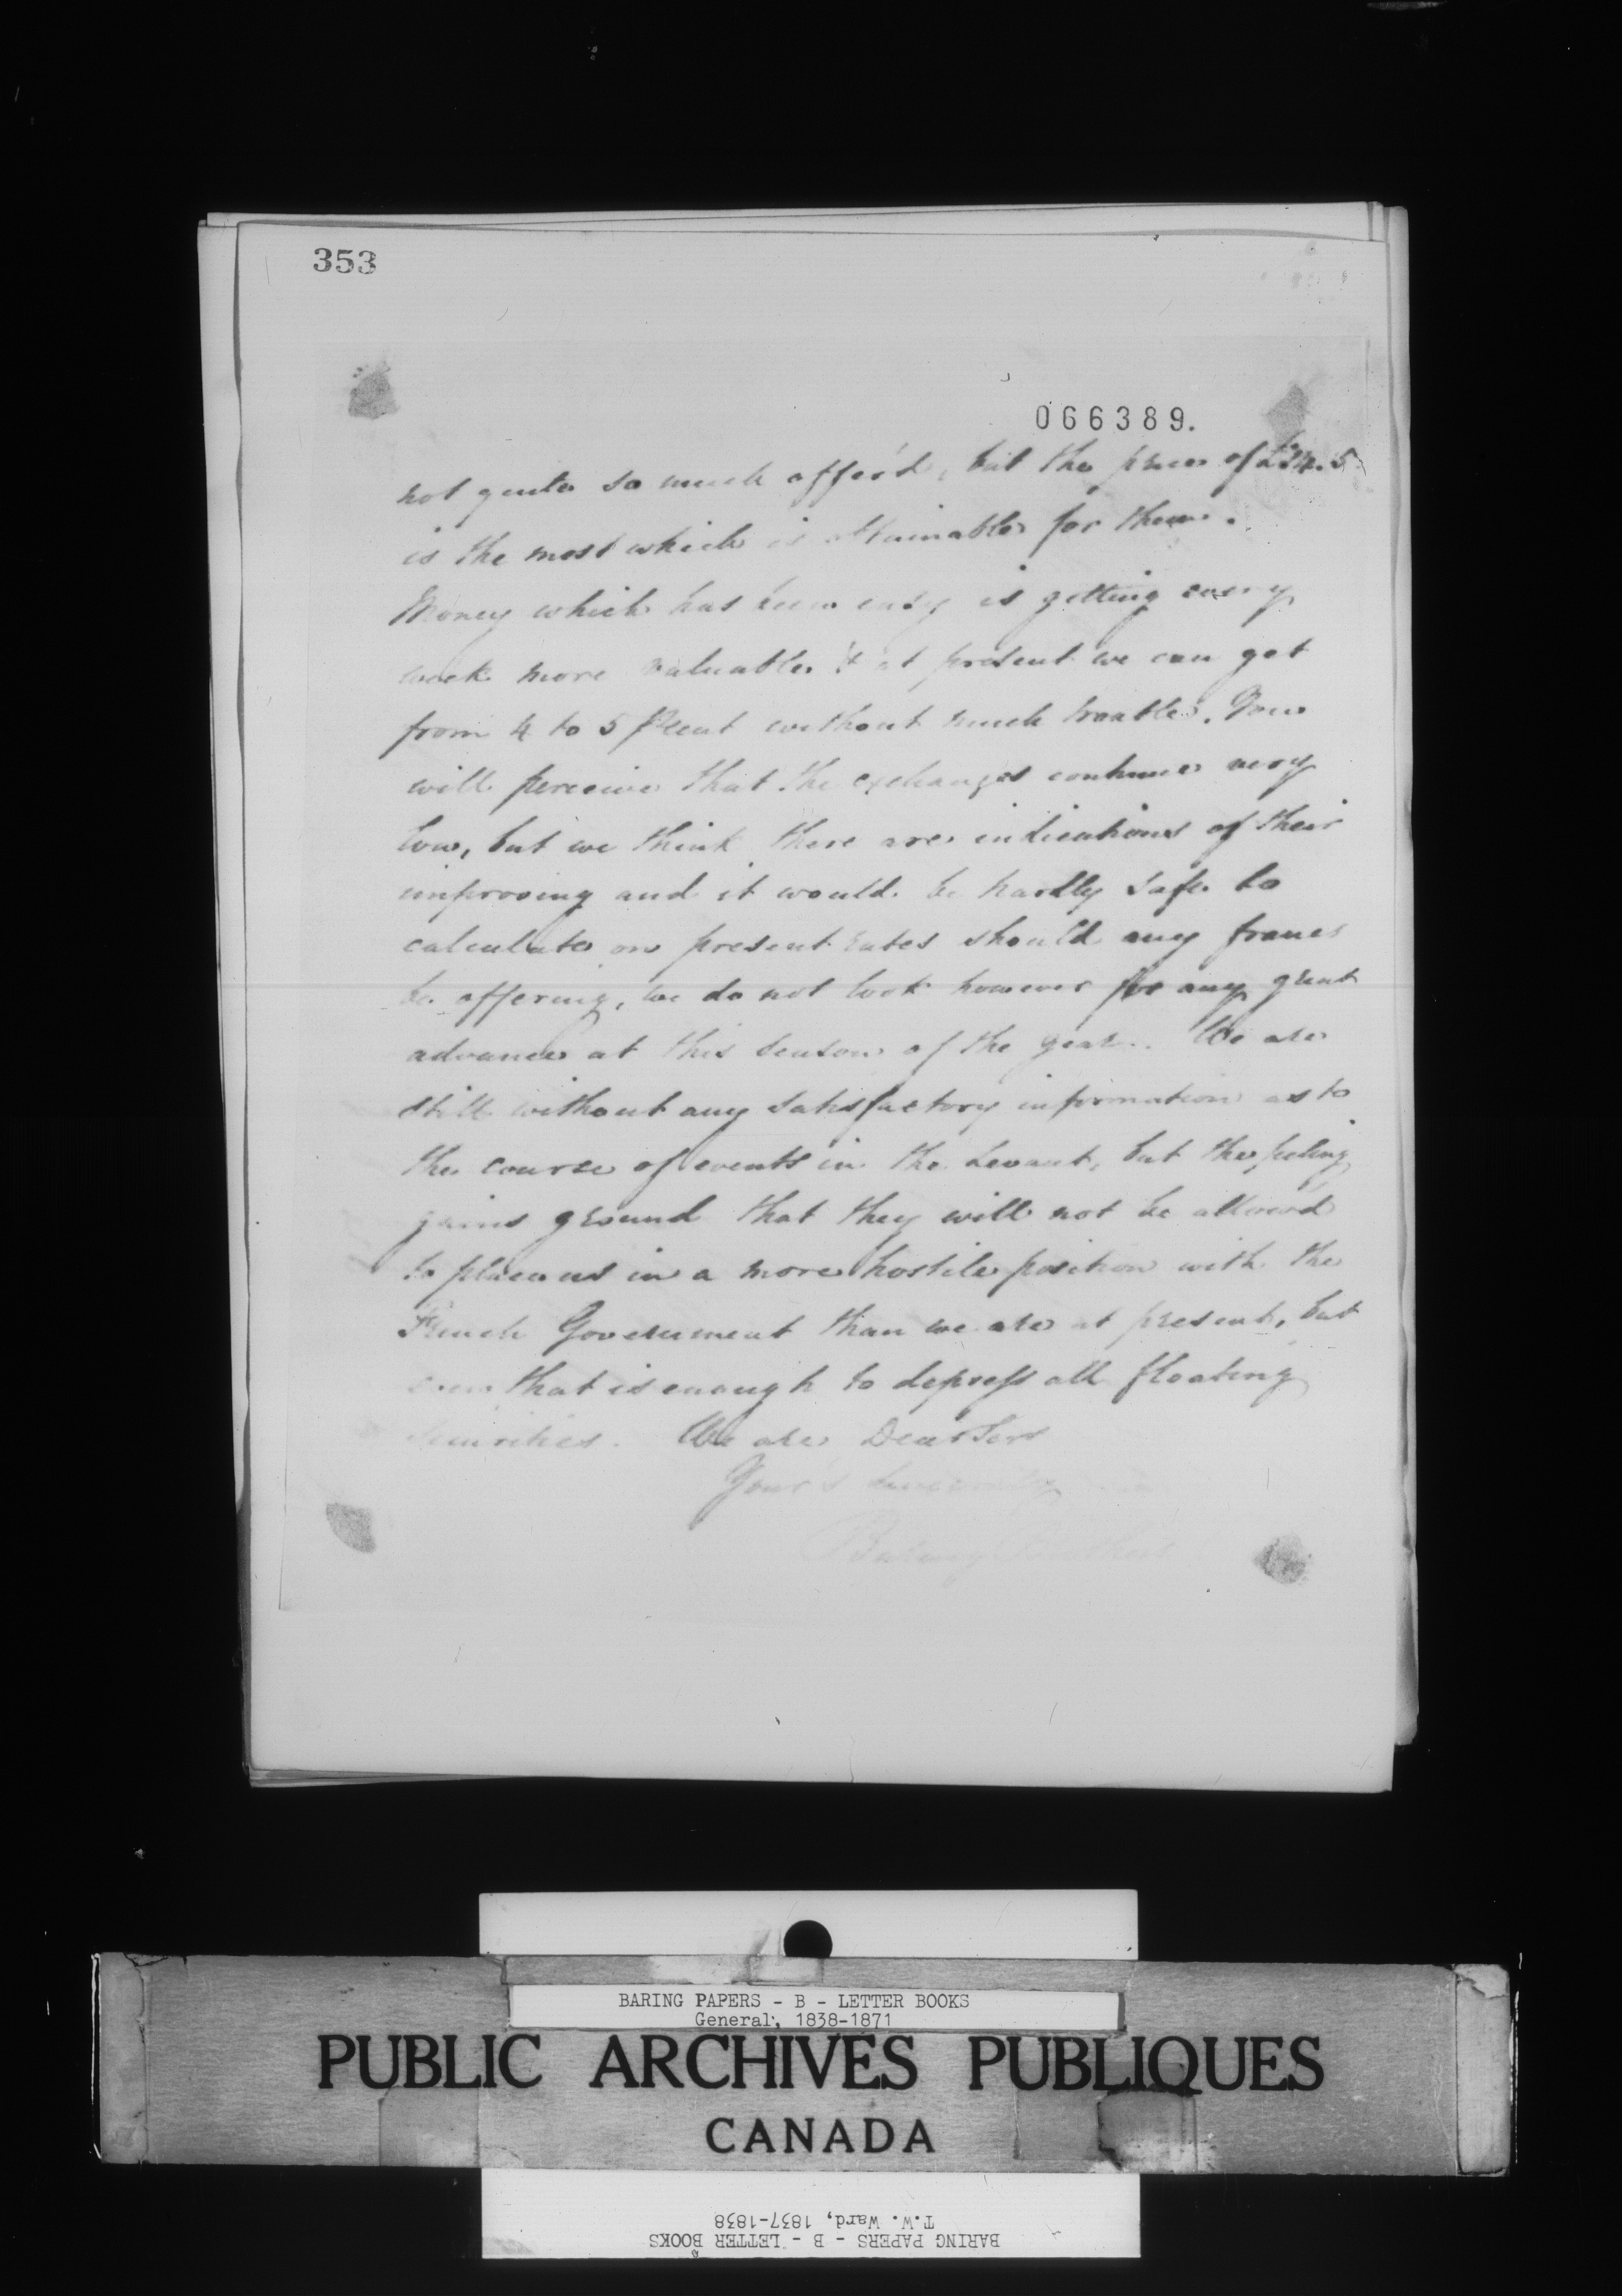 353
066389.
not quite so much offer'd, but the price of £24.5
is the most which is attainable for them.
Money which has been easy is getting every
week more valuable & at present we can get
from 4 to 5 Pcent without much trouble. You
will perceive that the exchanges continue very
low, but we think there are indications of their
improving and it would be hardly safe to
calculate on present rates should any francs
be offering, we do not look however for any great
advance at this season of the year. We are
still without any satisfactory information as to
the course of events in the Levant, but the feeling
gains ground that they will not be allow'd
to place us in a more hostile position with the
French Government than we are at present, but
even that is enough to depress all floating
securities. We are Dear Sirs
Your's sincerely
Baring Brothers
BARING PAPERS - B - LETTER BOOKS
General, 1838-1871
PUBLIC ARCHIVES PUBLIQUES
CANADA
BARING PAPERS - B - LETTER BOOKS
T.W. Ward, 1837-1838